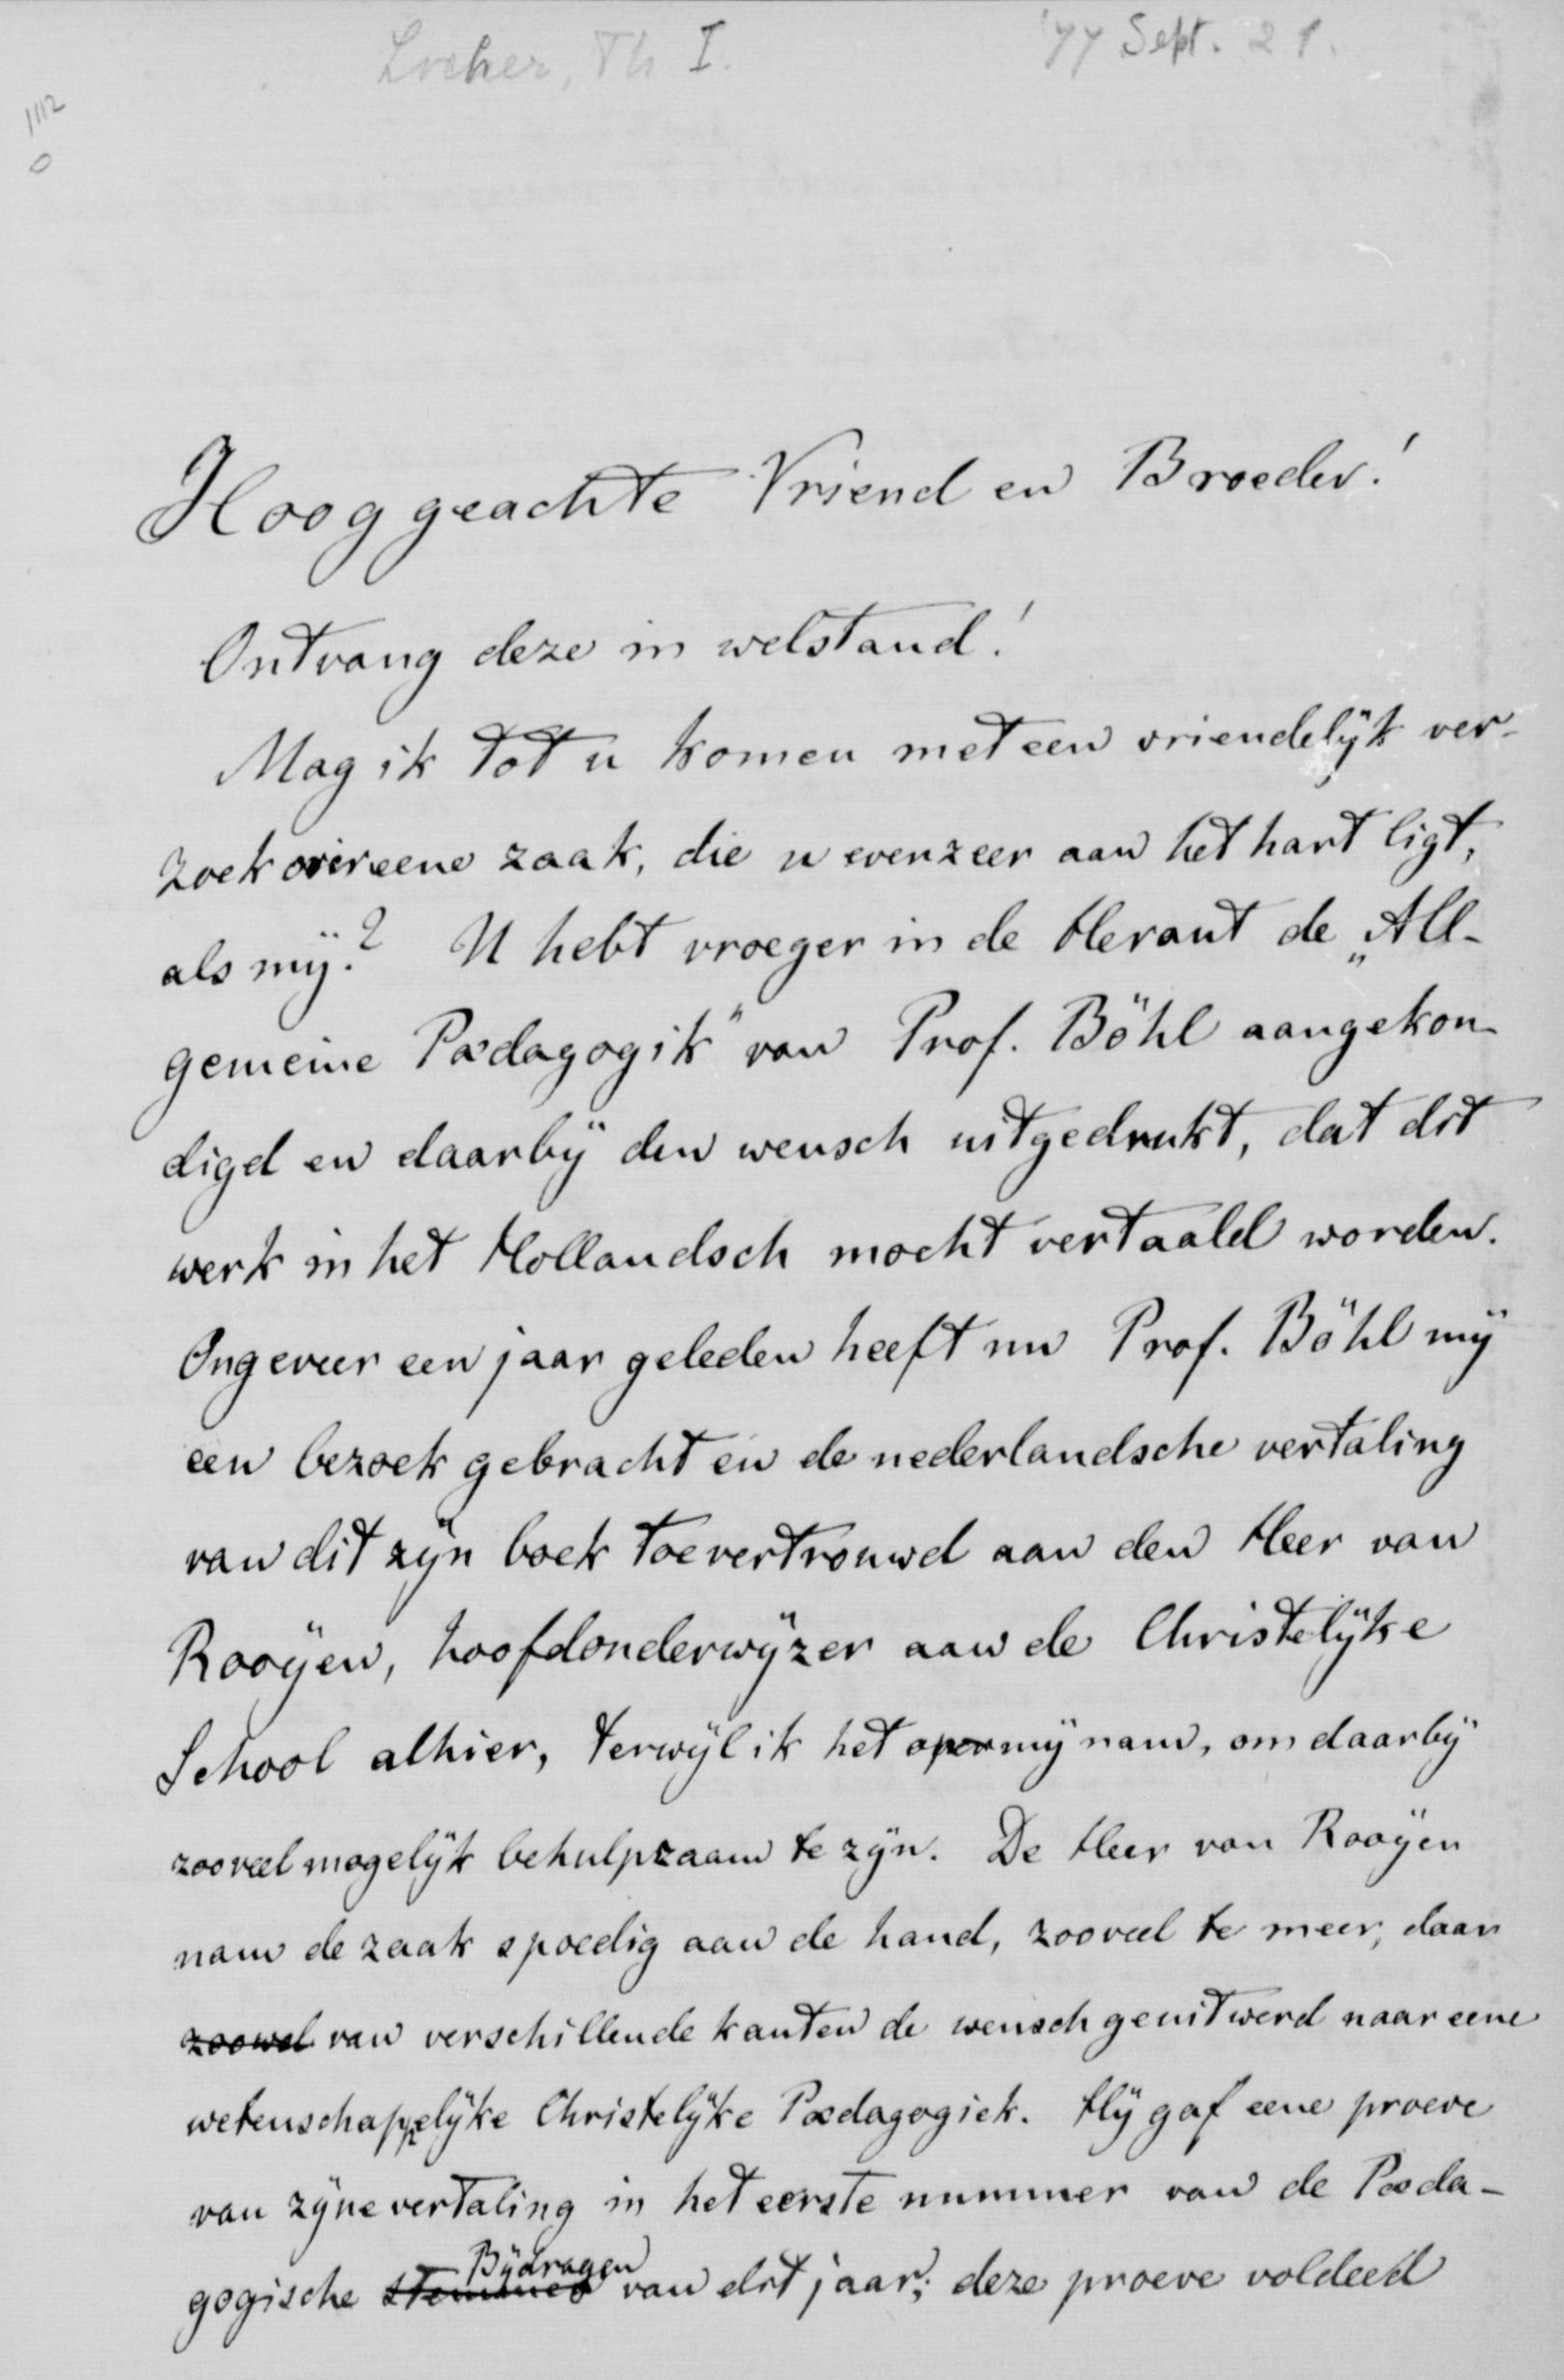 Locher, Th I. '77 Sept. 21.
1112
0
Hooggeachte Vriend en Broeder!
Ontvang deze in welstand!
Mag ik tot u komen met een vriendelijk ver-
zoek over eene zaak, die u evenzeer aan het hart ligt,
als mij? U hebt vroeger in de Heraut de „All-
gemeine Pædagogik" van Prof. Böhl aangekon-
digd en daarbij den wensch uitgedrukt, dat dit
werk in het Hollandsch mocht vertaald worden.
Ongeveer een jaar geleden heeft nu Prof. Böhl mij
een bezoek gebracht en de nederlandsche vertaling
van dit zijn boek toevertrouwd aan den Heer van
Rooijen, hoofdonderwijzer aan de Christelijke
School alhier, terwijl ik het op mij nam, om daarbij
zooveel mogelijk behulpzaam te zijn. De Heer van Rooijen
nam de zaak spoedig aan de hand, zooveel te meer, daar
zoowel van verschillende kanten de wensch geuit werd naar eene
wetenschappelijke Christelijke Pædagogiek. Hij gaf eene proeve
van zijne vertaling in het eerste nummer van de Pæda-
gogische stemmen Bijdragen van dit jaar; deze proeve voldeed